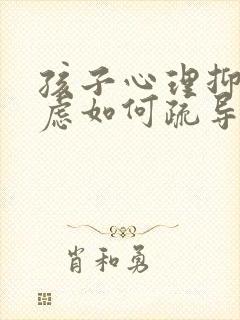 孩子心理抑
虑如何疏导
肖和勇